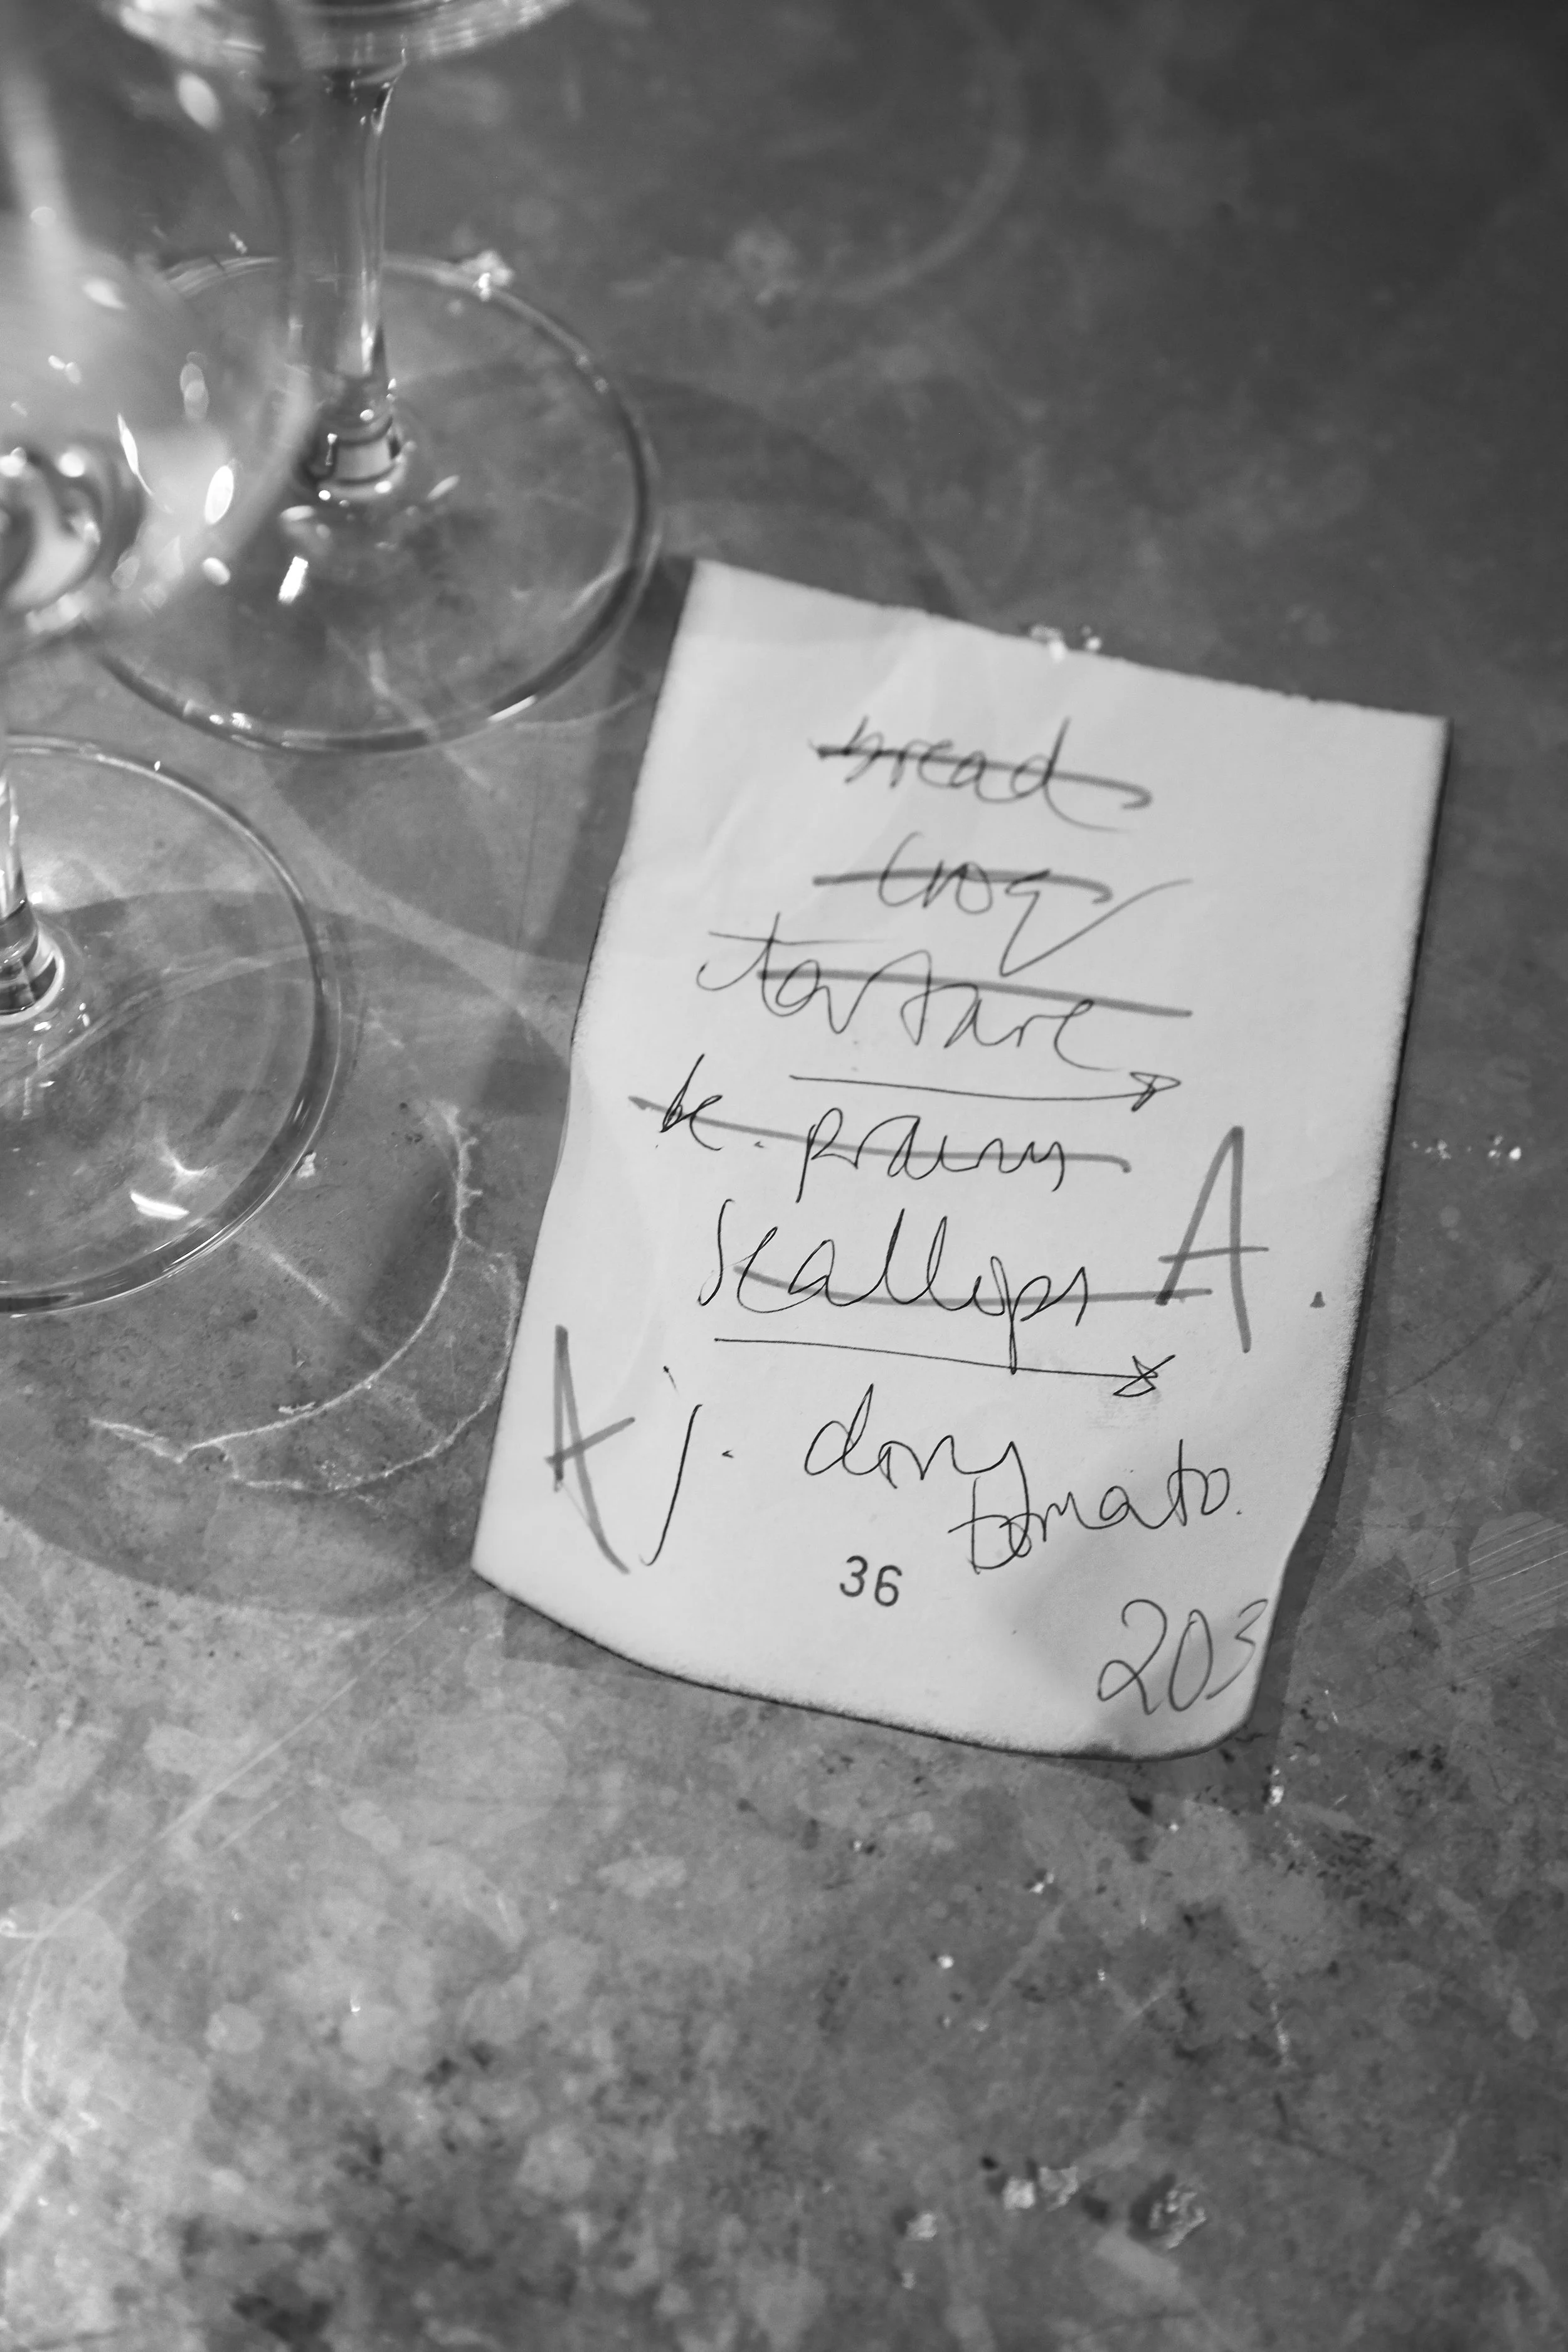 bread
croq
tartare
k. prawn
scallops A.
A j. dory
tomato.
36
203